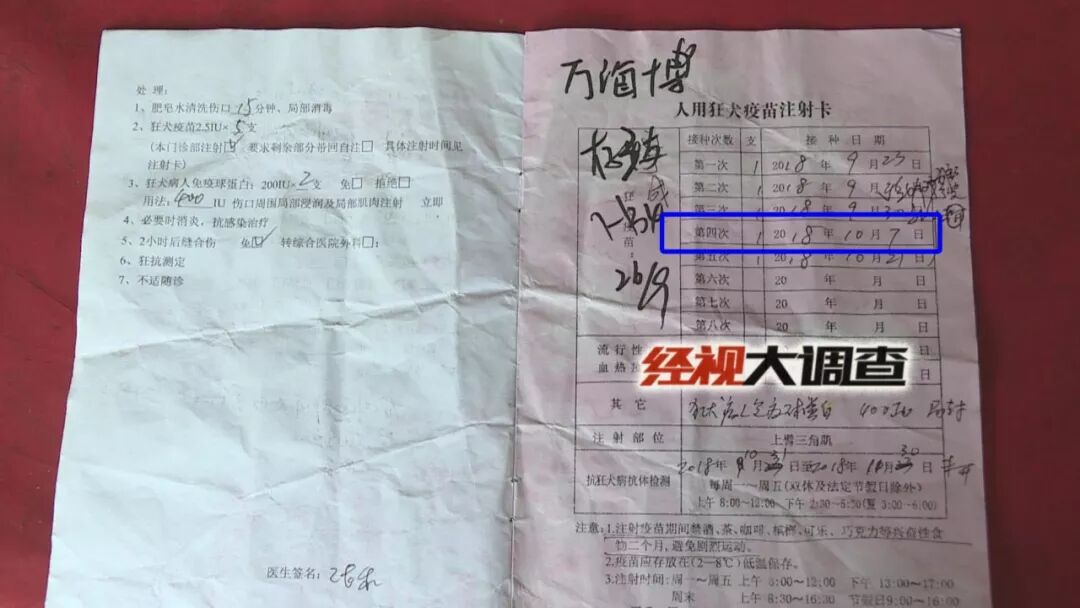 处 理:
1、肥皂水清洗伤口 15 分钟、局部消毒
2、狂犬疫苗2.5IU× 5 支
(本门诊部注射☑ 要求剩余部分带回自注□ 具体注射时间见
注射卡)
3、狂犬病人免疫球蛋白: 200IU× 2 支 免□ 拒绝□
用法: 400 IU 伤口周围局部浸润及局部肌肉注射 立即
4、必要时消炎，抗感染治疗
5、2小时后缝合伤 免☑ 转综合医院外科□:
6、狂抗测定
7、不适随诊
医生签名:
人用狂犬疫苗注射卡
接种次数 支 接 种 日 期
第一次 1 2018 年 9 月 23 日
第二次 1 2018 年 9 月
第三次 1 2018 年 9 月
第四次 1 2018 年 10 月 7 日
第五次 1 2018 年 10 月 21 日
第六次 20 年 月 日
第七次 20 年 月 日
第八次 20 年 月 日
流行性
血热
日
日
经视大调查
其 它 400IU
注射部位 上臂三角肌
抗狂犬病抗体检测 2018 年 10 月 31 日至2018 年 11 月 30 日
每周一～周五(双休及法定节假日除外)
上午 8:00～12:00 下午 2:30～5:30(夏 3:00～6:00)
注意: 1.注射疫苗期间禁酒、茶、咖啡、槟榔、可乐、巧克力等兴奋性食
物二个月,避免剧烈运动。
2.疫苗应存放在(2—8℃)低温保存。
3.注射时间: 周一～周五 上午 8:00～12:00 下午 13:00～17:00
周末 上午 8:30～16:30 节假日9:00～16:00